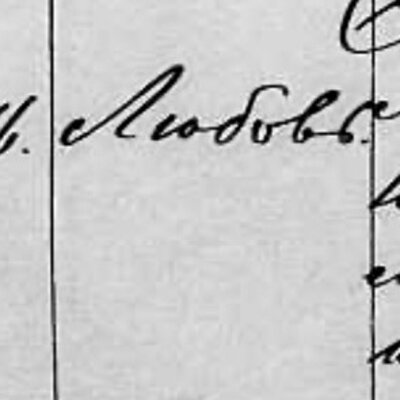 Любовь.